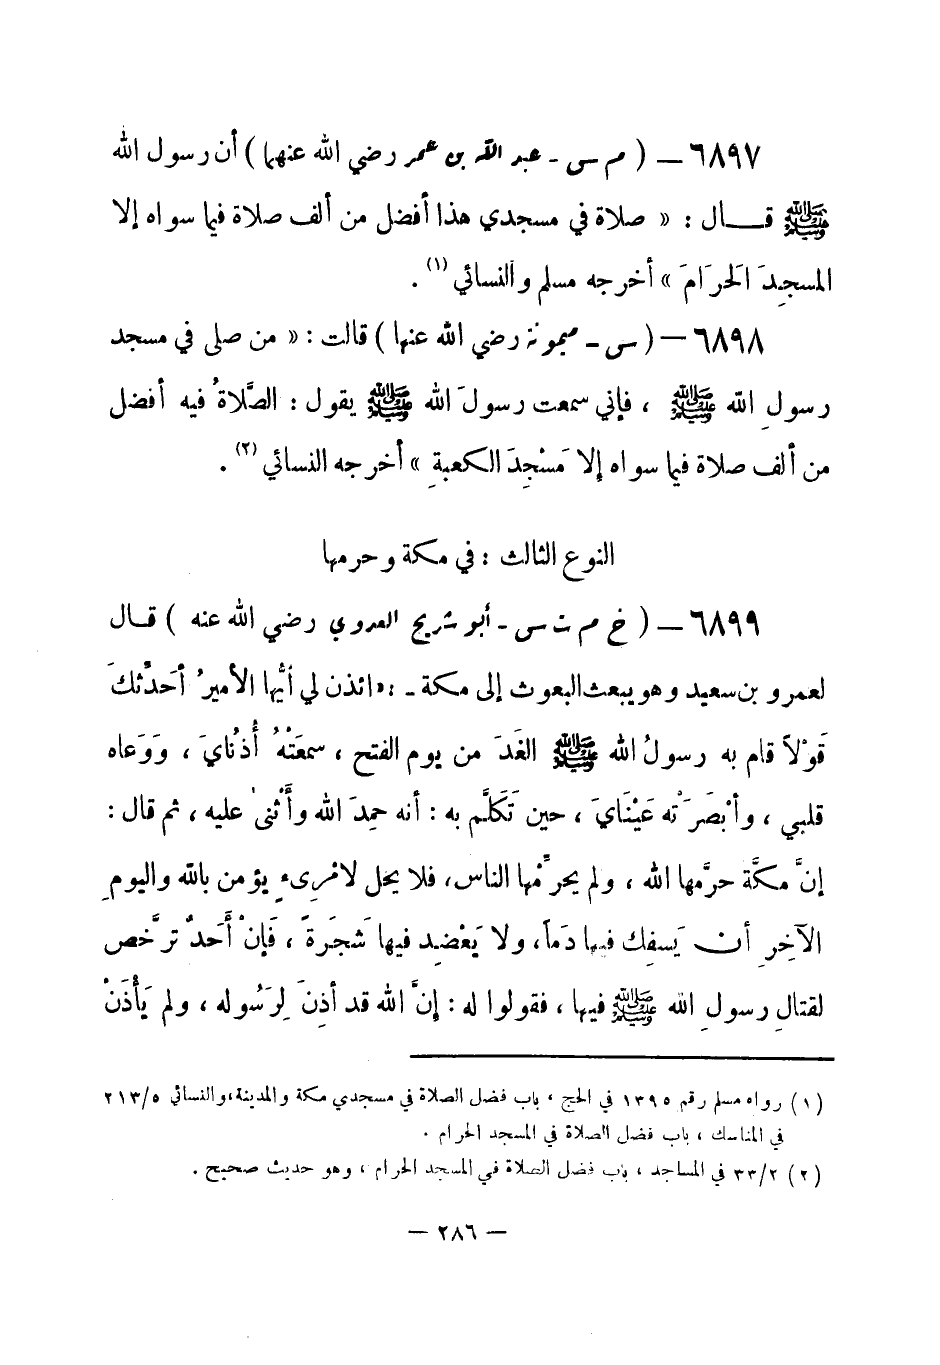 ٦٨٩٧ – ( م س - عبد الله بن عمر رضي الله عنهما ) أن رسول الله
ﷺ قــال : « صلاة في مسجدي هذا أفضل من ألف صلاة فيما سواه إلا
المسجِدَ الحَرَامَ » أخرجه مسلم والنسائي (١) .
٦٨٩٨ – ( س - ميمونة رضي الله عنها ) قالت : « من صلى في مسجد
رسولِ الله ﷺ ، فإني سمعت رسولَ الله ﷺ يقول : الصَّلاةُ فيه أفضل
من ألف صلاة فيما سواه إلا مَسْجِدَ الكعبةِ » أخرجه النسائي (٢) .
النوع الثالث : في مكة وحرمها
٦٨٩٩ – ( خ م ت س - أبو شريح العدوي رضي الله عنه ) قــال
لعمرو بن سعيد وهو يبعث البعوث إلى مكة - : « ائذن لي أيُّها الأميرُ أحَدِّثكَ
قَوْلاً قام به رسولُ الله ﷺ الغَدَ من يوم الفتح ، سمعَتْهُ أُذُنايَ ، وَوَعاه
قلبي ، وأبْصَرَتْه عَيْنَايَ ، حين تَكَلَّم به : أنه حمِدَ الله وأَثْنى عليه ، ثم قال :
إنَّ مكَّة حرَّمها الله ، ولم يحرِّمْها الناس، فلا يحل لامْرِىءٍ يؤمن بالله واليومِ
الآخِرِ أن يَسفِك فيها دَماً، ولا يَعْضِد فيها شَجَرَةً ، فَإنْ أَحَدٌ ترَخَّص
لقتالِ رسولِ الله ﷺ فيها ، فقولوا له : إنَّ الله قد أذِنَ لِرَسُوله ، ولم يَأْذَنْ
(١) رواه مسلم رقم ١٣٩٥ في الحج ، باب فضل الصلاة في مسجدي مكة والمدينة، والنسائي ٢١٣/٥
في المناسك ، باب فضل الصلاة في المسجد الحرام .
(٢) ٣٣/٢ في المساجد ، باب فضل الصلاة في المسجد الحرام ، وهو حديث صحيح .
– ٢٨٦ –